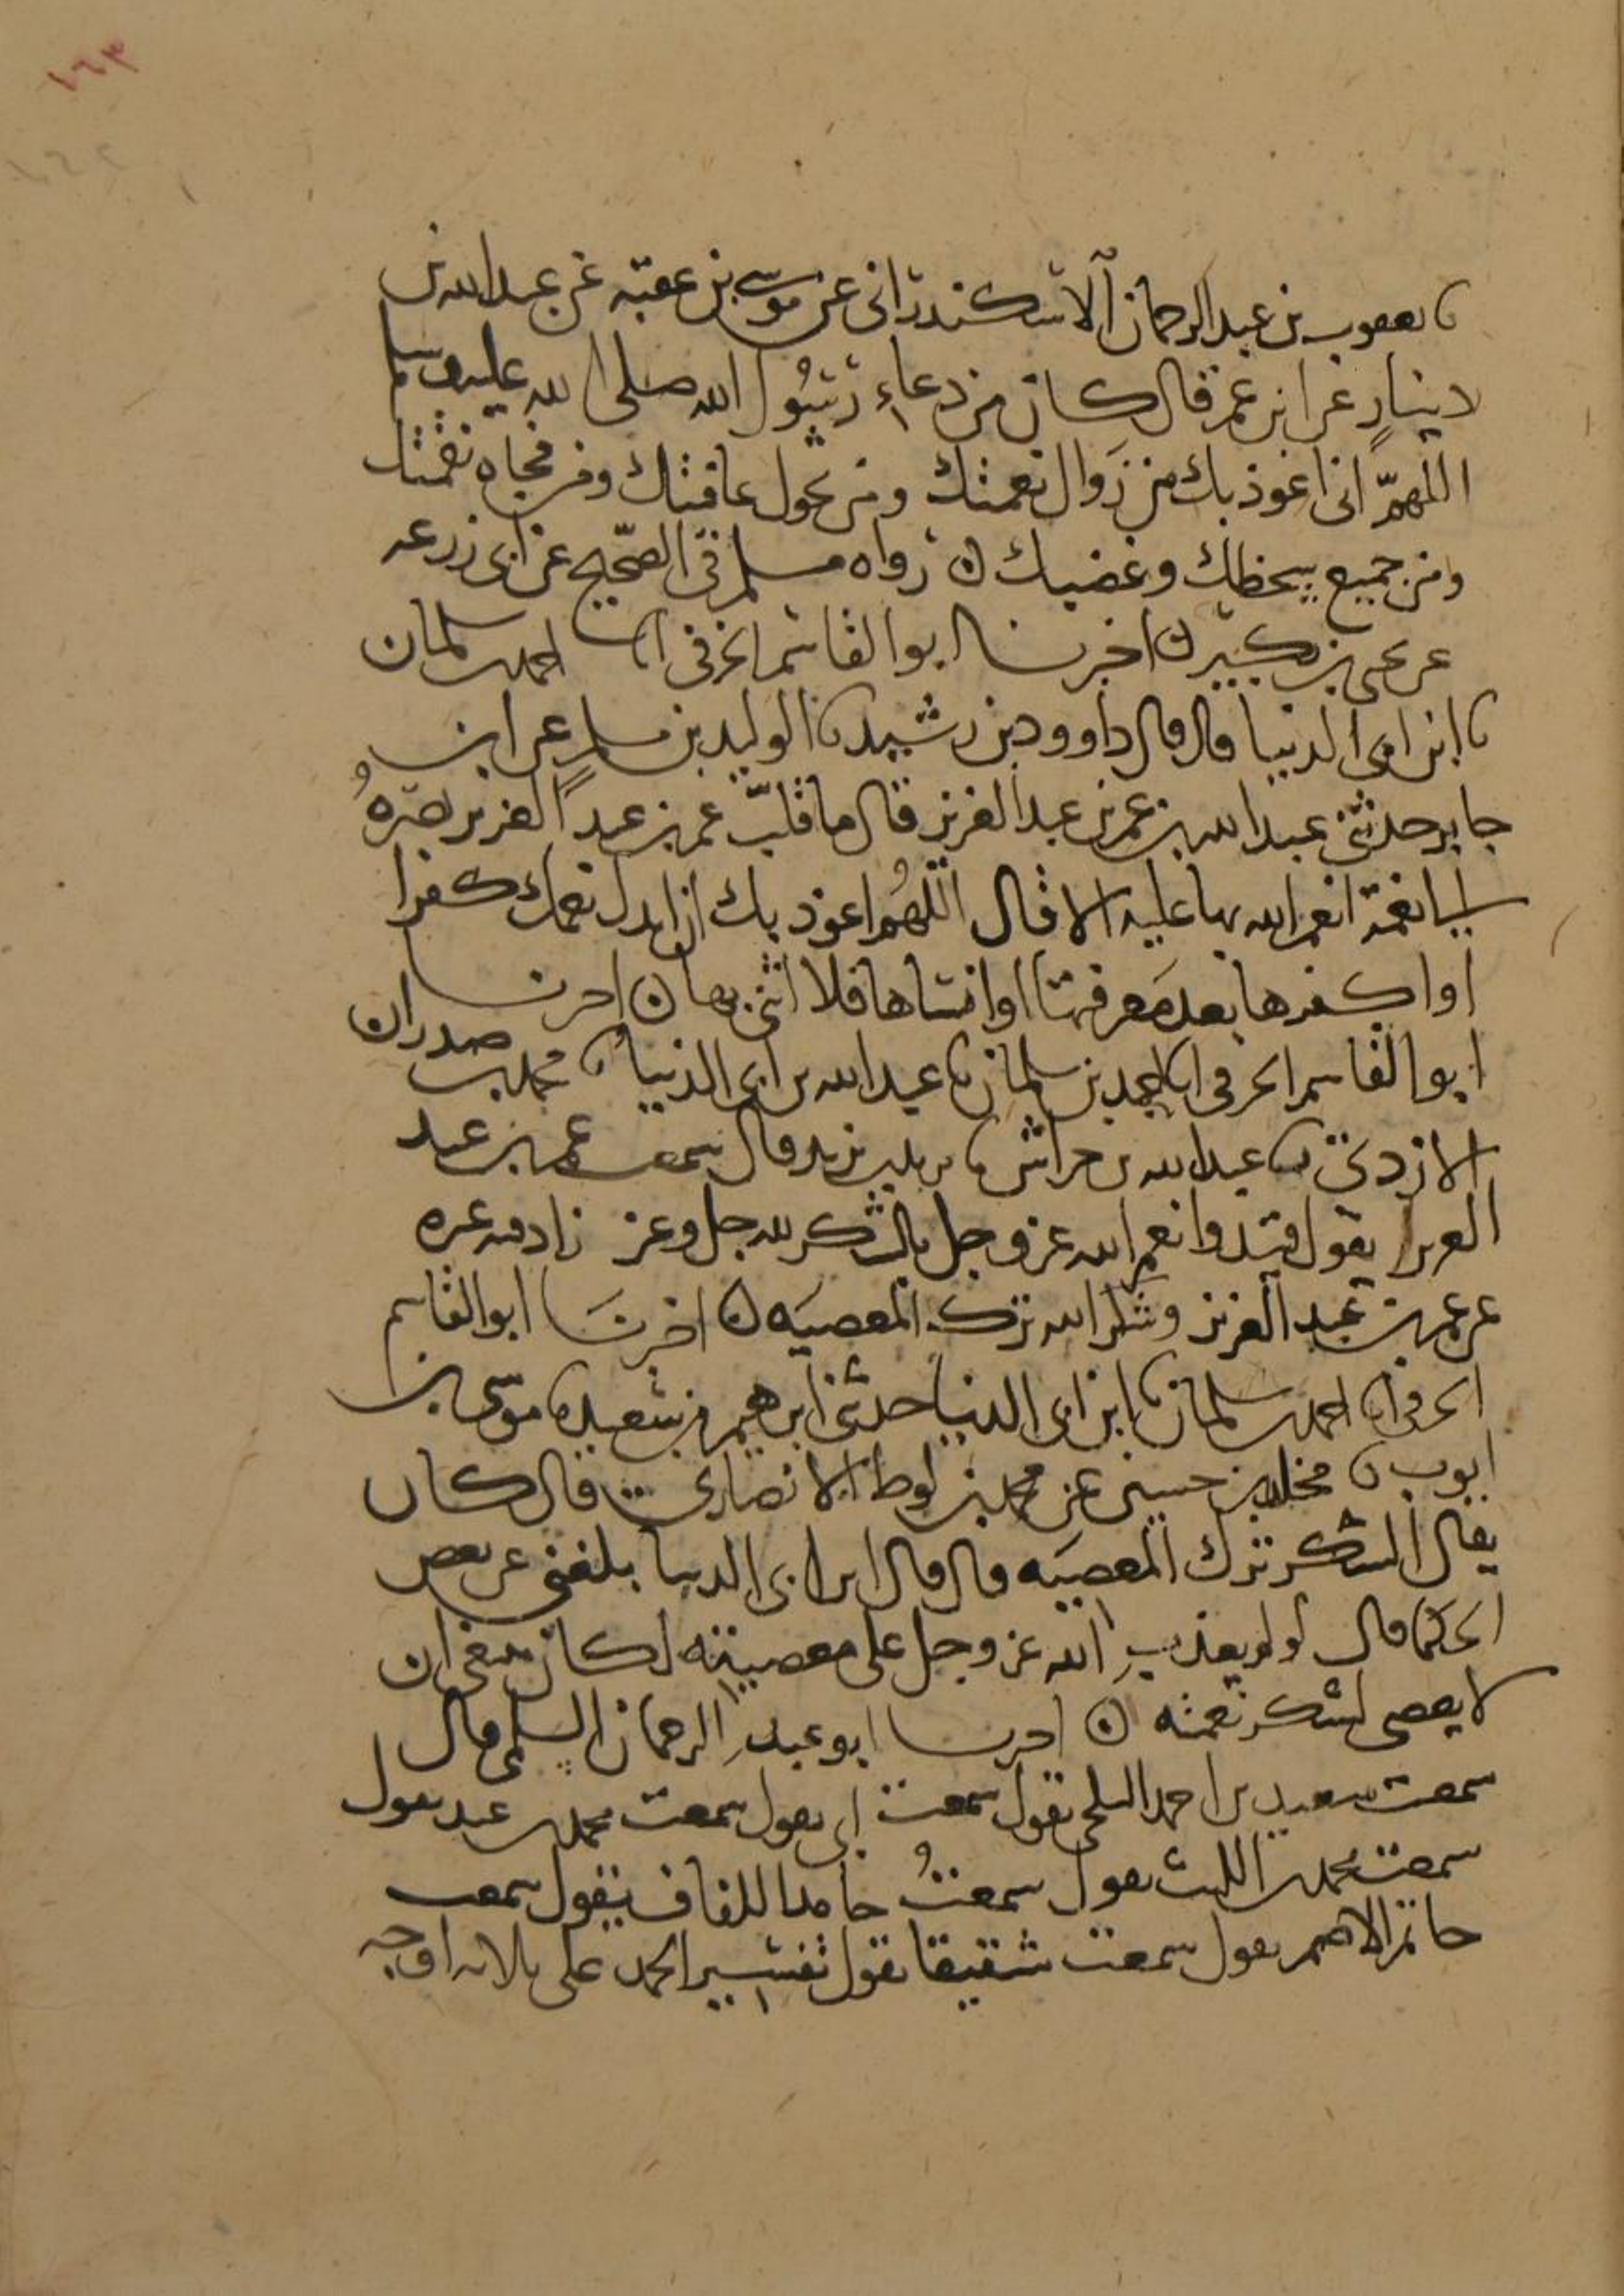 ١٦٣
نا يعقوب بن عبد الرحمان الاسكندراني عن موسى بن عقبة عن عبد الله بن
دينار عن ابن عمر قال كان من دعاء رسول الله صلى الله عليه وسلم
اللهم اني اعوذ بك من زوال نعمتك ومن تحول عافيتك ومن فجاه نقمتك
ومن جميع سخطك وغضبك ن رواه مسلم في الصحيح عن ابي زرعه
عن يحيى بن بكير ن اخبرنا ابو القاسم الحرفي انا احمد بن سلمان
نا ابن ابي الدنيا قال قال داوود بن رشيد نا الوليد بن مسلم عن ابن
جابر حدثني عبد الله بن عمر بن عبد العزيز قال ما قلب عمر بن عبد العزيز بصره
الى نعمة انعم الله بها عليه الا قال اللهم اعوذ بك ان ابدل نعمك كفرا
او اكفرها بعد معرفتها او انساها فلا اثني بها ن اخبرنا
ابو القاسم الحرفي انا احمد بن سلمان نا عبد الله بن ابي الدنيا نا محمد بن صدران
الازدي نا عبد الله بن خراش نا يزيد بن يزيد قال سمعت عمر بن عبد
العزيز يقول قيدوا نعم الله عز وجل بالشكر لله جل وعز زاد فيه غيره
عن عمر بن عبد العزيز وشكر الله ترك المعصيه ن اخبرنا ابو القاسم
الحرفي انا احمد بن سلمان نا ابن ابي الدنيا حدثني ابرهيم بن سعيد نا موسى بن
ايوب نا مخلد بن حسين عن محمد بن لوط الانصاري قال كان
يقال الشكر ترك المعصيه قال قال ابن ابي الدنيا بلغني عن بعض
الحكما قال لو لم يعذب الله عز وجل على معصيته لكان ينبغي ان
لا يعصى لشكر نعمته ن اخبرنا ابو عبد الرحمان السلمي قال
سمعت سعيد بن احمد البلخي يقول سمعت ابي يقول سمعت محمد بن عبد يقول
سمعت محمد بن الليث يقول سمعت حامدا اللفاف يقول سمعت
حاتم الاصم يقول سمعت شقيقا يقول تفسير الحمد على ثلاثه اوجه